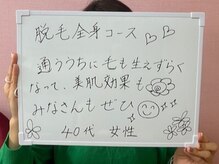 脱毛全身コース
通ううちに毛も生えずらく
なって、美肌効果も
みなさんもぜひ
40代 女性